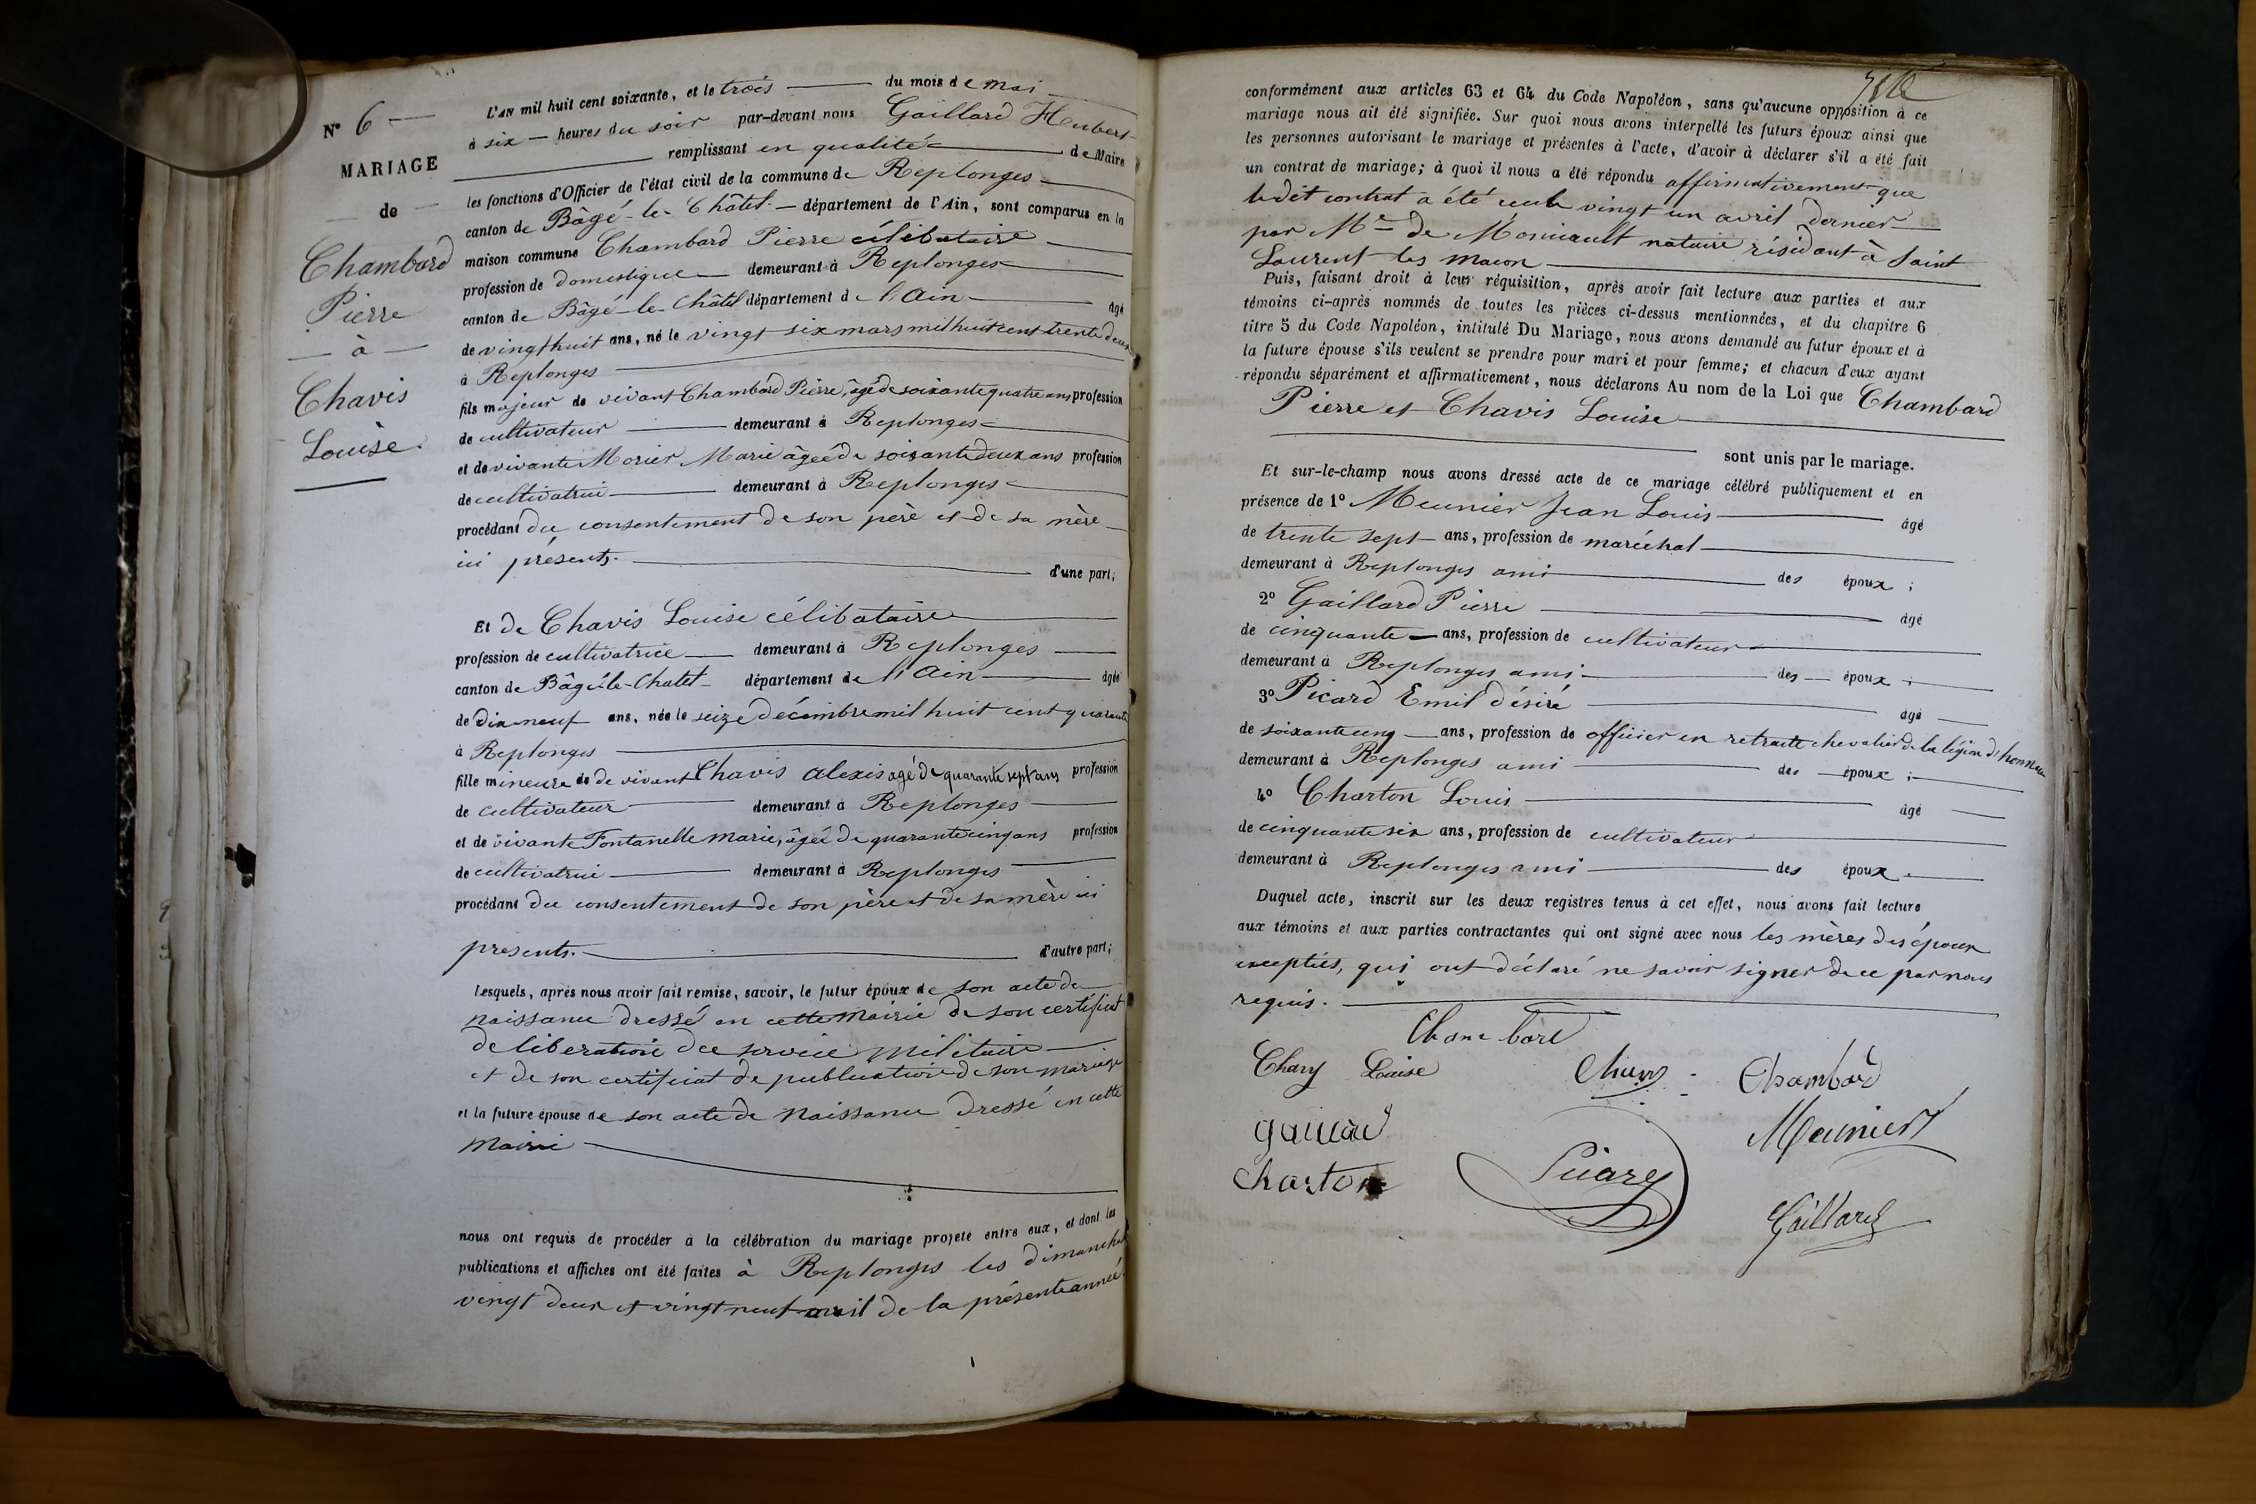 N° 6
MARIAGE
de
Chambard
Pierre
à
Chavis
Louise
L'AN mil huit cent soixante, et le trois du mois de mai
à six heures du soir par-devant nous Gaillard Hubert
remplissant en qualité de Maire
les fonctions d'Officier de l'état civil de la commune de Replonges
canton de Bâgé-le-Châtel département de l'Ain, sont comparus en la
maison commune Chambard Pierre célibataire
profession de domestique demeurant à Replonges
canton de Bâgé-le-Châtel département de l'Ain âgé
de vingt huit ans, né le vingt six mars mil huit cent trente deux
à Replonges
fils majeur de vivant Chambard Pierre, âgé de soixante quatre ans profession
de cultivateur demeurant à Replonges
et de vivante Morier Marie âgée de soixante deux ans profession
de cultivatrice demeurant à Replonges
procédant du consentement de son père et de sa mère
ici présents. d'une part;
Et de Chavis Louise célibataire
profession de cultivatrice demeurant à Replonges
canton de Bâgé-le-Chatel département de l'Ain âgée
de dix neuf ans, née le seize décembre mil huit cent quarante
à Replonges
fille mineure de de vivant Chavis Alexis agé de quarante sept ans profession
de cultivateur demeurant à Replonges
et de vivante Fontanelle Marie, âgée de quarante cinq ans profession
de cultivatrice demeurant à Replonges
procédant du consentement de son père et de sa mère ici
présents. d'autre part;
Lesquels, après nous avoir fait remise, savoir, le futur époux de son acte de
naissance dressé en cette Mairie de son certificat
de libération du service militaire
et de son certificat de publication de son mariage
et la future épouse de son acte de naissance dressé en cette
Mairie
nous ont requis de procéder à la célébration du mariage projeté entre eux, et dont les
publications et affiches ont été faites à Replonges les dimanches
vingt deux et vingt neuf avril de la présente année.
conformément aux articles 63 et 64 du Code Napoléon, sans qu'aucune opposition à ce
mariage nous ait été signifiée. Sur quoi nous avons interpellé les futurs époux ainsi que
les personnes autorisant le mariage et présentes à l'acte, d'avoir à déclarer s'il a été fait
un contrat de mariage; à quoi il nous a été répondu affirmativement que
le dit contrat a été reçu le vingt un avril dernier
par Me de notaire résidant à Saint
Laurent les Macon
Puis, faisant droit à leur réquisition, après avoir fait lecture aux parties et aux
témoins ci-après nommés de toutes les pièces ci-dessus mentionnées, et du chapitre 6
titre 5 du Code Napoléon, intitulé Du Mariage, nous avons demandé au futur époux et à
la future épouse s'ils veulent se prendre pour mari et pour femme; et chacun d'eux ayant
répondu séparément et affirmativement, nous déclarons Au nom de la Loi que Chambard
Pierre et Chavis Louise
sont unis par le mariage.
Et sur-le-champ nous avons dressé acte de ce mariage célébré publiquement et en
présence de 1° Meunier Jean Louis âgé
de trente sept ans, profession de maréchal
demeurant à Replonges ami des époux;
2° Gaillard Pierre âgé
de cinquante ans, profession de cultivateur
demeurant à Replonges ami des époux;
3° Picard Emil désiré âgé
de soixante cinq ans, profession de officier en retraite chevalier de la légion d'honneur
demeurant à Replonges ami des époux;
4° Charton Louis âgé
de cinquante six ans, profession de cultivateur
demeurant à Replonges ami des époux.
Duquel acte, inscrit sur les deux registres tenus à cet effet, nous avons fait lecture
aux témoins et aux parties contractantes qui ont signé avec nous les mères des époux
exceptées, qui ont déclaré ne savoir signer de ce par nous
requis.
Chambard
Chavy Louise Chambard
Meunier
Charton
Gaillard